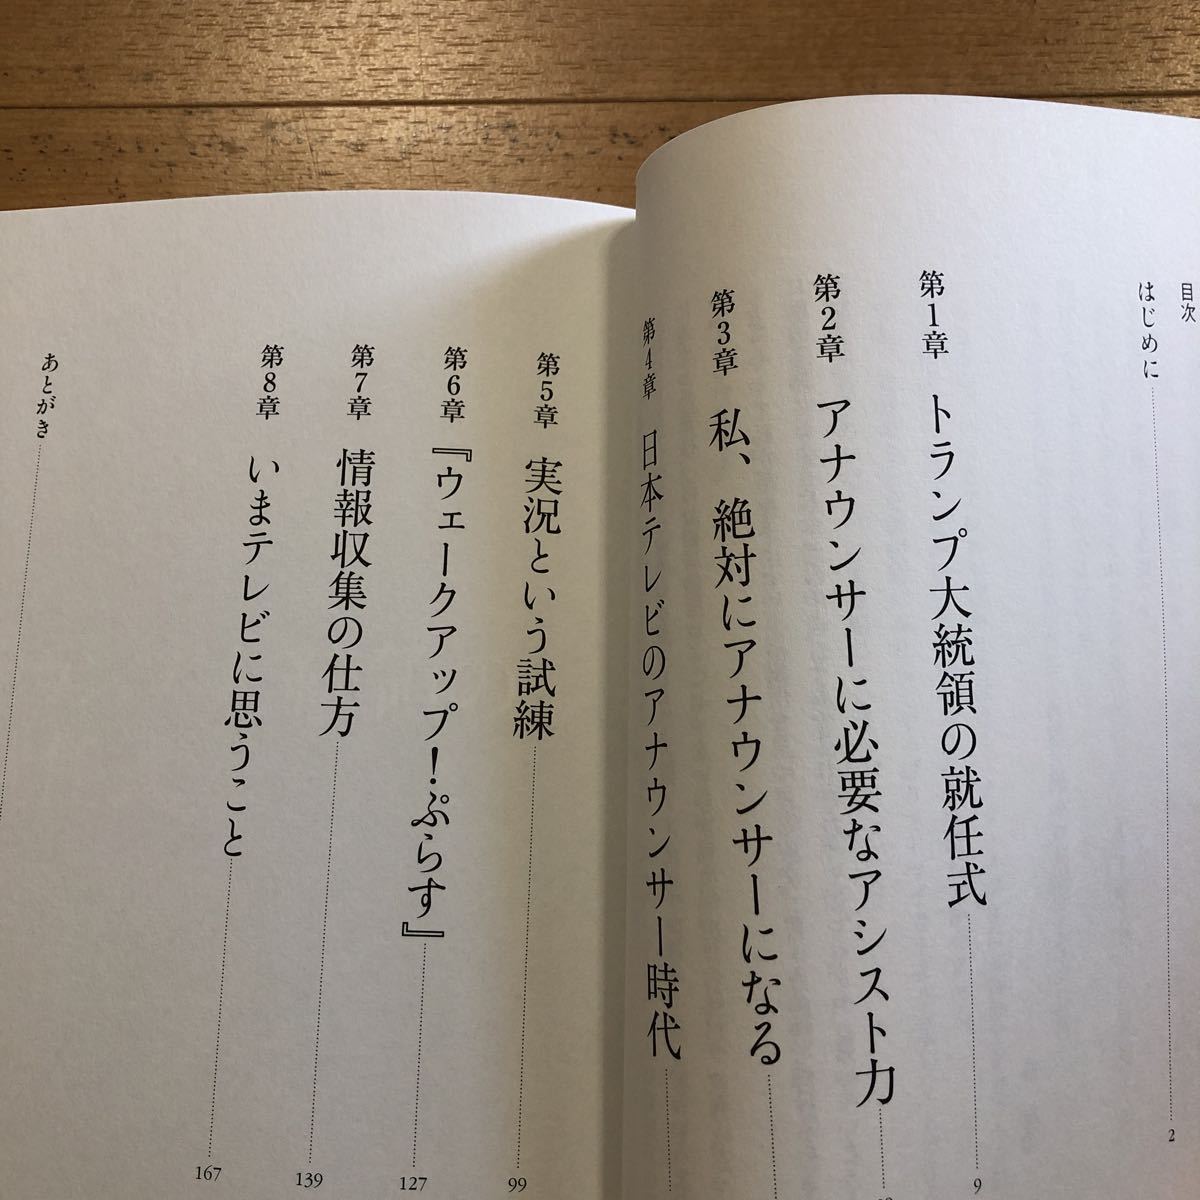 目次
はじめに 2
第1章 トランプ大統領の就任式 9
第2章 アナウンサーに必要なアシスト力
第3章 私、絶対にアナウンサーになる
第4章 日本テレビのアナウンサー時代
第5章 実況という試練 99
第6章 『ウェークアップ!ぷらす』 127
第7章 情報収集の仕方 139
第8章 いまテレビに思うこと 167
あとがき